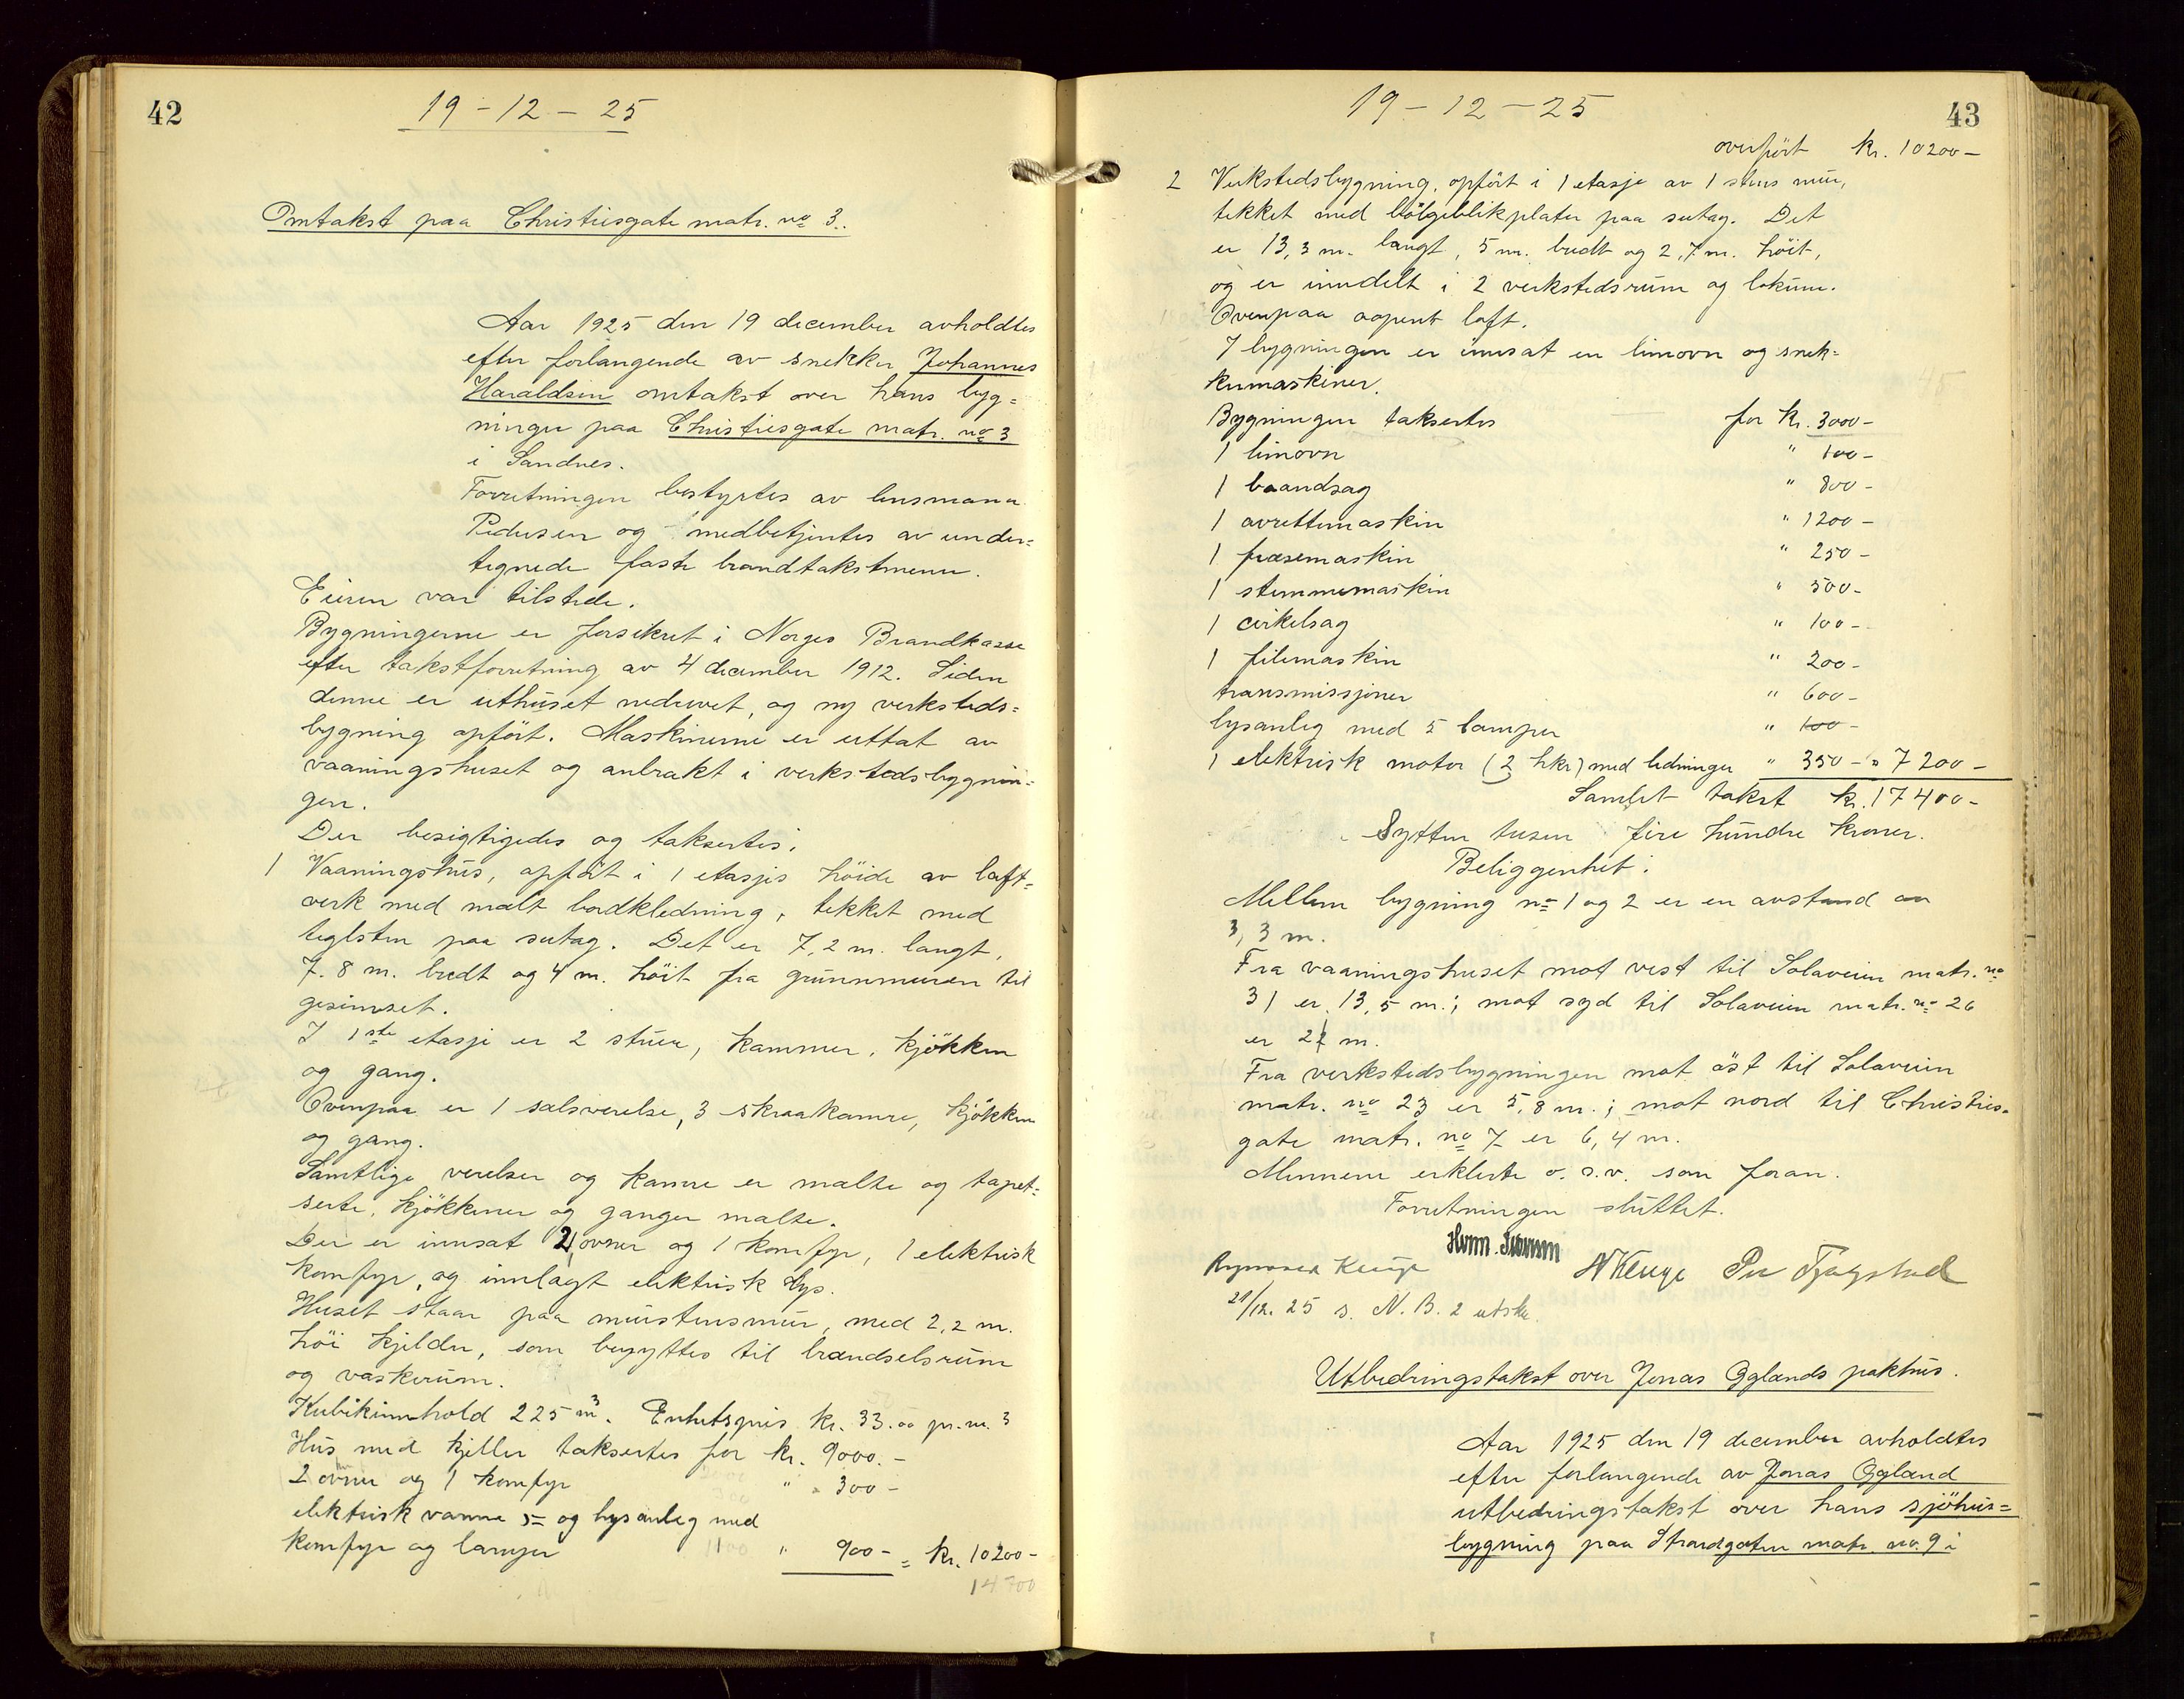 42
19 - 12 - 25
Omtakst paa Christiesgate matr. no 3.
Aar 1925 den 19 december avholdtes
efter forlangende av snekker Johannes
Haraldsen omtakst over hans byg=
ninger paa Christiesgate matr. no 3
i Sandnes.
Forretningen bestyrtes av lensmann
Pedersen og medbetjentes av under=
tegnede faste brandtakstmenn.
Eieren var tilstede.
Bygningerne er forsikret i Norges Brandkasse
efter takstforretning av 4 december 1912. Siden
denne er uthuset nedrevet, og ny verksteds=
bygning opført. Maskinerne er uttat av
vaaningshuset og anbrakt i verkstedsbygnin=
gen.
Der besigtigedes og taksertes:
1 Vaaningshus, opført i 1 etasjes höide av laft=
verk med malt bordkledning, tekket med
teglsten paa sutag. Det er 7,2 m. langt,
7.8 m. bredt og 4 m. höit fra grunnmuren til
gesimset.
I 1ste etasje er 2 stuer, kammer, kjökken
og gang.
Ovenpaa er 1 salsverelse, 3 skraakamre, kjökken
og gang.
Samtlige verelser og kamre er malte og tapet=
serte, kjökkener og ganger malte.
Der er innsat 2 ovner og 1 komfyr, 1 elektrisk
komfyr, og innlagt elektrisk lys.
Huset staar paa murstensmur, med 2,2 m.
höi kjelder, som benyttes til brændselsrum
og vaskerum.
Kubikinnhold 225 m3. Enhetspris kr. 33.00 pr. m.3
Hus med kjeller taksertes for kr. 9000.-
2 ovner og 1 komfyr " 300 -
elektrisk varme = og lysanleg med
komfyr og lamper " 900 - = kr. 10200-
14700
43
19 - 12 - 25
overført kr. 10200-
2 Verkstedsbygning, opfört i 1 etasje av 1 stens mur,
tekket med bölgeblikplater paa sutag. Det
er 13,3 m. langt, 5 m. bredt og 2,7 m. höit,
og er inndelt i 2 verkstedsrum og lokum.
Ovenpaa aapent loft.
I bygningen er innsat en limovn og snek=
kermaskiner.
Bygningen taksertes for kr. 3000-
1 limovn " 100-
1 baandsag " 800-
1 avrettemaskin " 1200-
1 fræsemaskin " 250-
1 stemmemaskin " 500-
1 cirkelsag " 100-
1 filemaskin " 200-
transmissjoner " 600-
lysanleg med 5 lamper " 100-
1 elektrisk motor (2 hkr) med ledninger " 350- = 7200-
Samlet takst kr. 17400-
Sytten tusen fire hundre kroner.
Beliggenhet:
Mellem bygning no 1 og 2 er en avstand av
3,3 m.
Fra vaaningshuset mot vest til Solaveien matr. no
31 er 13,5 m.; mot syd til Solaveien matr. no 26
er 22 m.
Fra verkstedsbygningen mot öst til Solaveien
matr. no 23 er 5,8 m.; mot nord til Christies=
gate matr. no 7 er 6,4 m.
Mennene erklerte o. s. v. som foran.
Forretningen sluttet.
N Kenge
21/12. 25 s. N. B. 2 utskr.
Utbedringstakst over Jonas Øglands pakhus.
Aar 1925 den 19 december avholdtes
efter forlangende av Jonas Øgland
utbedringstakst over hans sjöhus=
bygning paa Strandgaten matr. no. 9 i